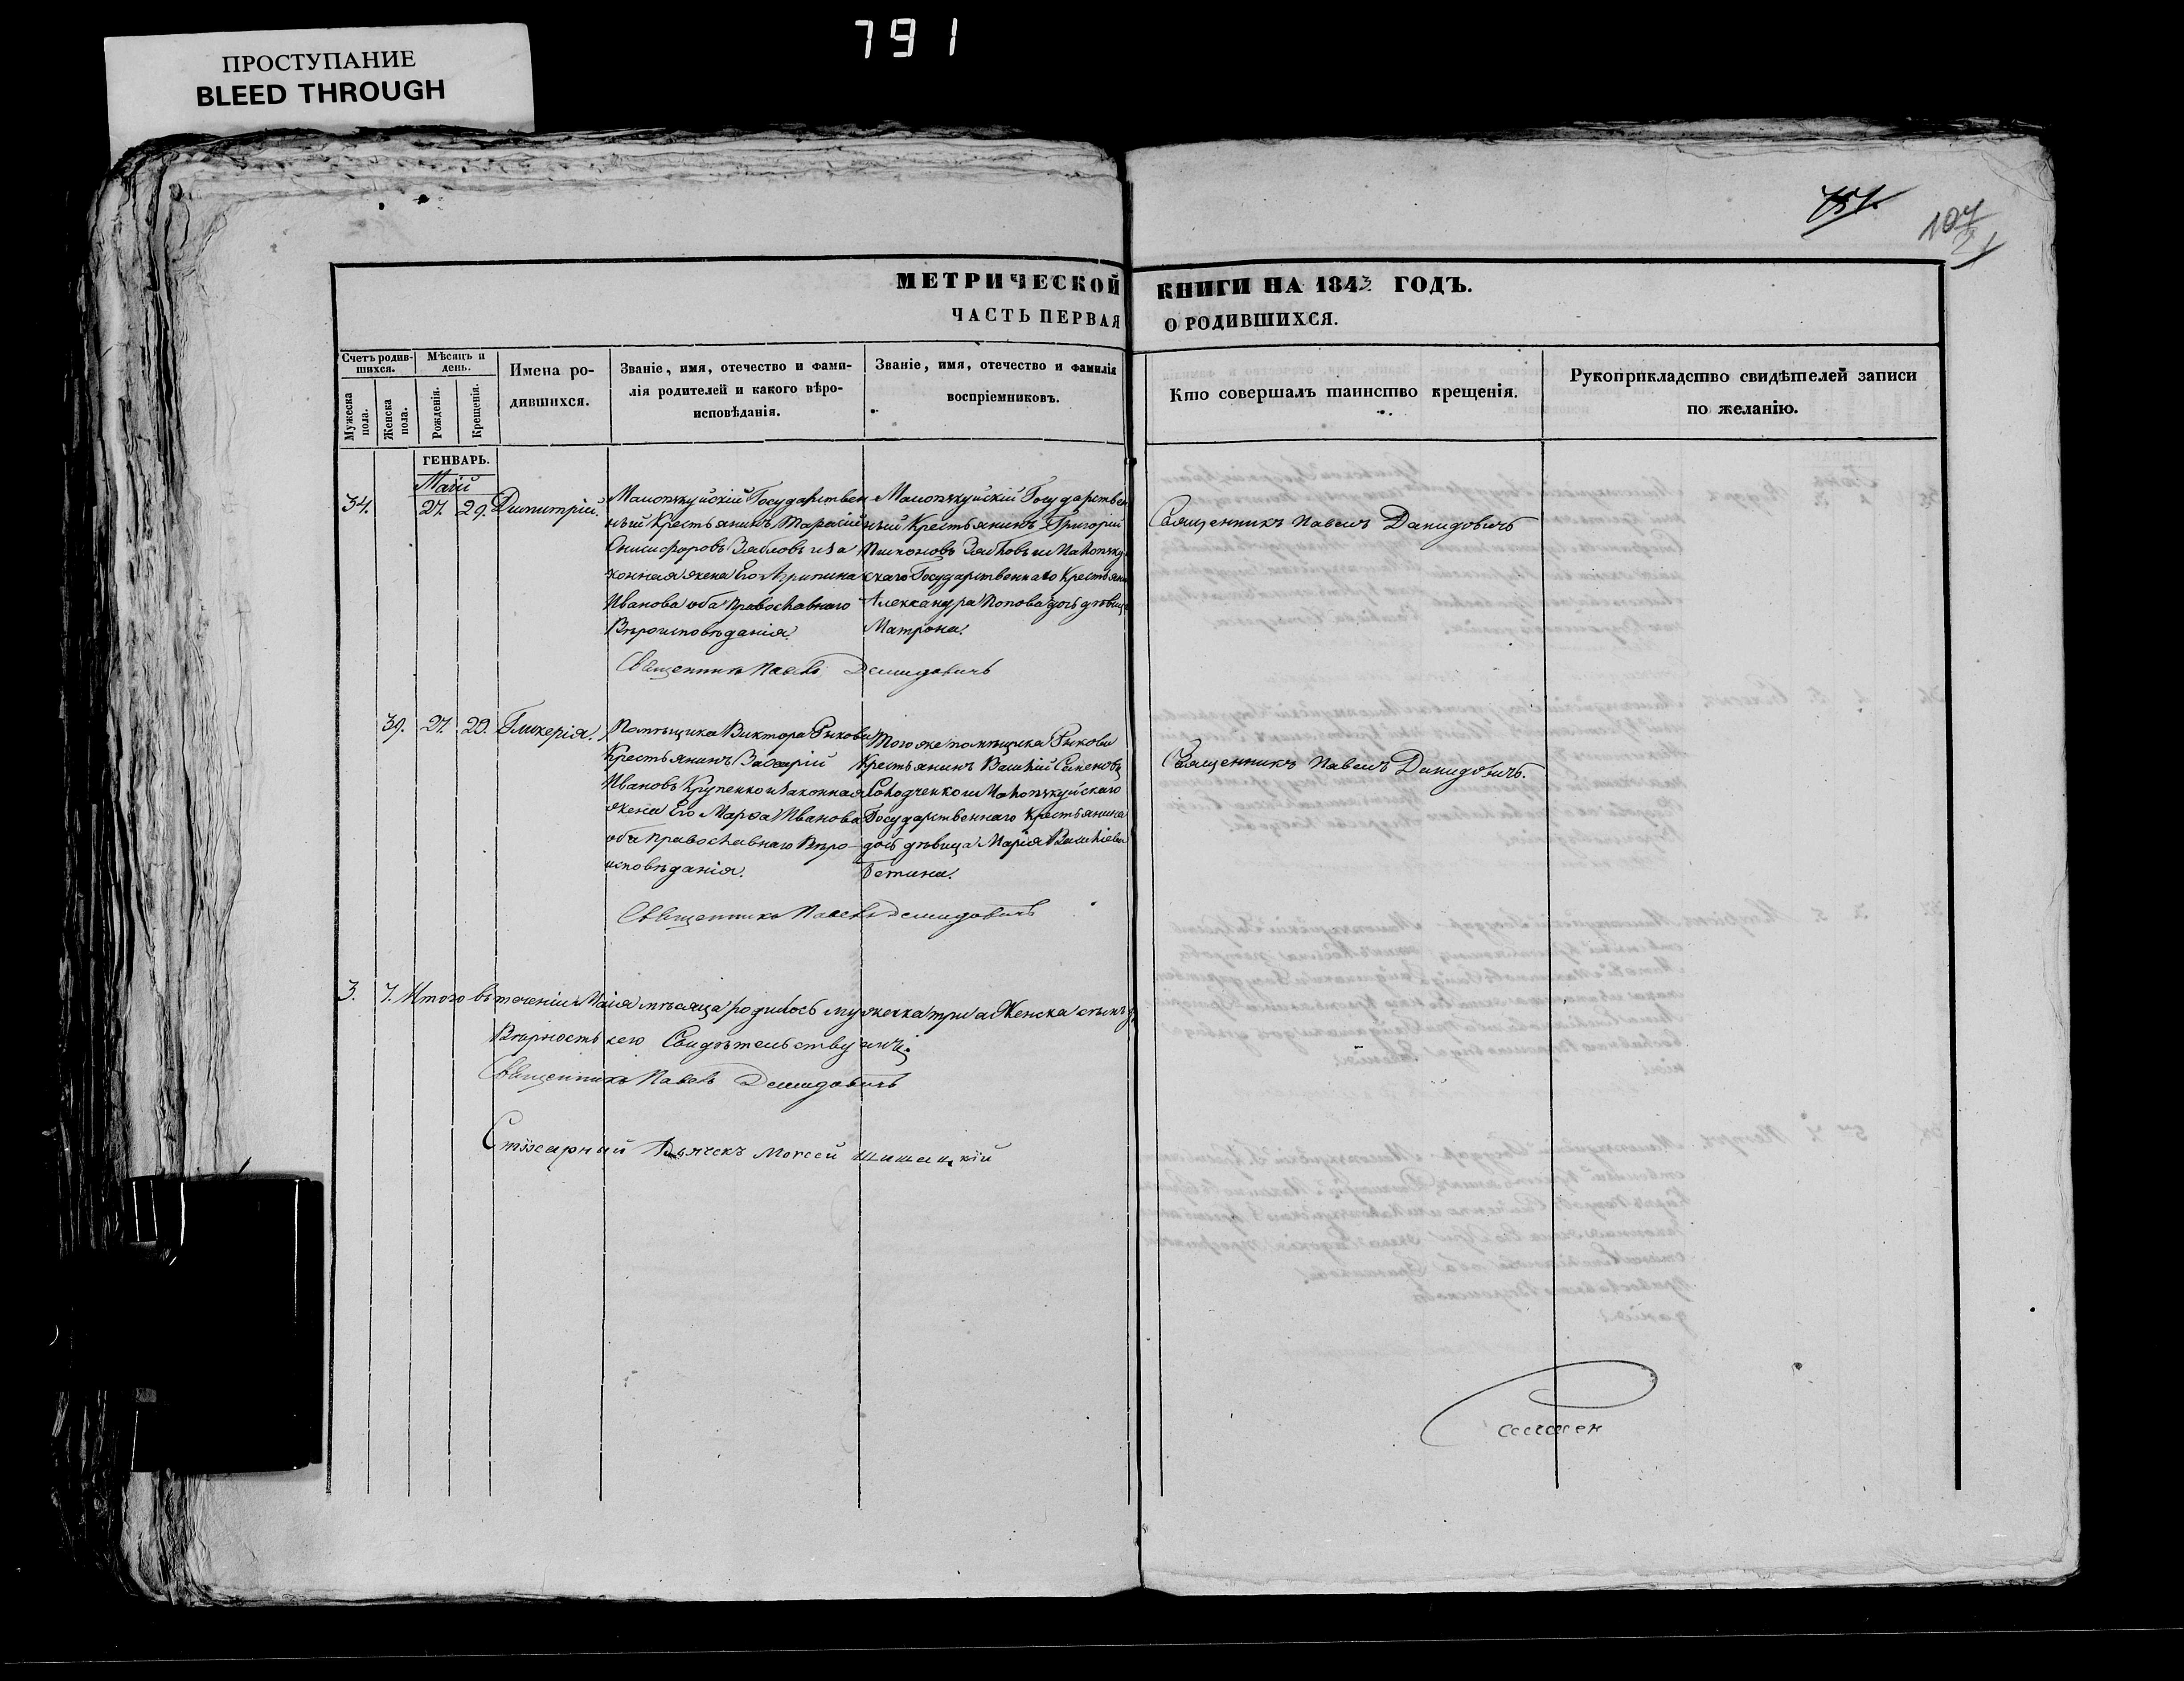 791
ПРОСТУПАНИЕ
BLEED THROUGH
107
МЕТРИЧЕСКОЙ КНИГИ НА 1843 ГОДЪ.
ЧАСТЬ ПЕРВАЯ О РОДИВШИХСЯ.
Счетъ родившихся.
Мужеска пола.
Женска пола.
Мѣсяцъ и день.
Рожденія.
Крещенія.
Имена родившихся.
Званіе, имя, отечество и фамилія родителей и какого вѣроисповѣданія.
Званіе, имя, отечество и фамилія воспріемниковъ.
Кто совершалъ таинство крещенія.
Рукоприкладство свидѣтелей записи по желанію.
ГЕНВАРЬ.
Маій
34. 27. 29. Димитрій.
Государствен
ный Крестьянинъ Тарасій
Онисифоровъ и за
конная жена Его Агрипина
Иванова оба православнаго
Вѣроисповѣданія.
Государствен
ный Крестьянинъ Григорій
скаго Государственнаго Крестьяни
Александра Попова дочь дѣвица
Матрона.
Священникъ Павелъ Демидовичъ
Священникъ Павелъ Демидовичъ
39. 27. 29. Гликерія.
Помѣщика Виктора Рыкова
Крестьянинъ Захарій
Ивановъ Крупенко и законная
жена Его Марфа Иванова
оба православнаго Вѣро-
исповѣданія.
Того же помѣщика Рыкова
Крестьянинъ Василій Семеновъ
Государственнаго Крестьянина
дочь дѣвица Марія Василіева
Священникъ Павелъ Демидовичъ.
Священникъ Павелъ Демидовичъ
3. 7. Итого въ теченіи Маія мѣсяца родилось мужеска три а Женска семь
Вѣрность сего Свидѣтельствуемъ:
Священникъ Павелъ Демидовичъ
Стихарный Дьячекъ Моисей Шишацкій